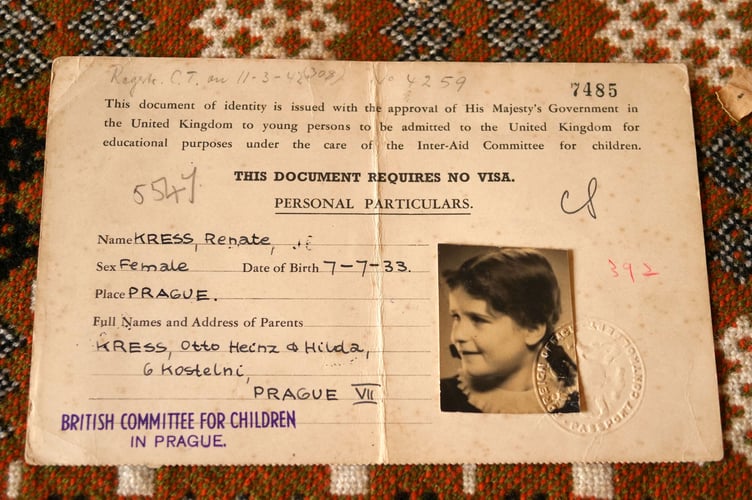 Regstr. C.T. on 11-3-42 No 4259
7485
This document of identity is issued with the approval of His Majesty's Government in
the United Kingdom to young persons to be admitted to the United Kingdom for
educational purposes under the care of the Inter-Aid Committee for children.
THIS DOCUMENT REQUIRES NO VISA.
PERSONAL PARTICULARS.
Name KRESS, Renate,
Sex Female Date of Birth 7-7-33.
392
Place PRAGUE.
Full Names and Address of Parents
KRESS, Otto Heinz & Hilda,
6 Kostelni,
PRAGUE VII
PASSPORT
BRITISH COMMITTEE FOR CHILDREN
IN PRAGUE.